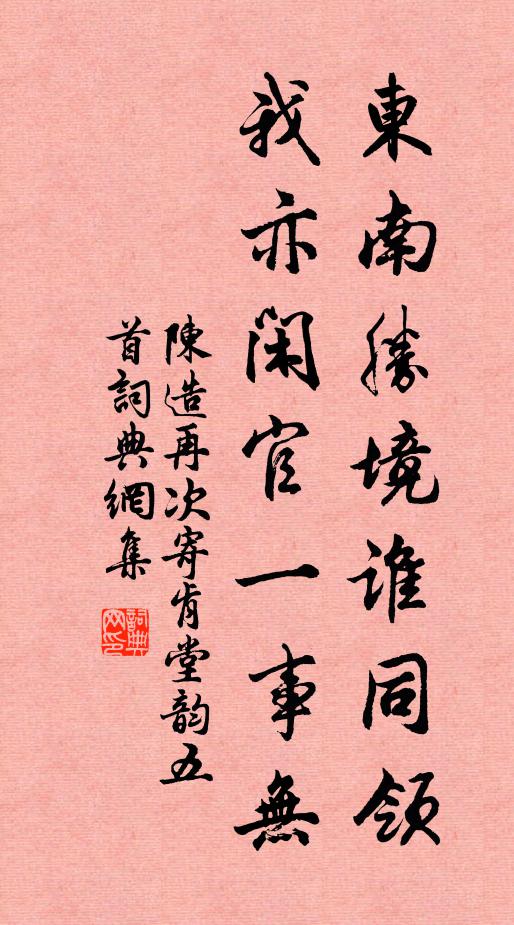 東南勝境誰同領
我亦閑官一事無
陳造再次寄肯堂韵五
首詞典網集
詞典
网印